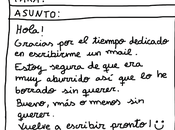 ASUNTO:
Hola!
Gracias por el tiempo dedicado
en escribirme un mail.
Estoy segura de que era
muy aburrido así que lo he
borrado sin querer.
Bueno, más o menos sin
querer.
Vuelve a escribir pronto!